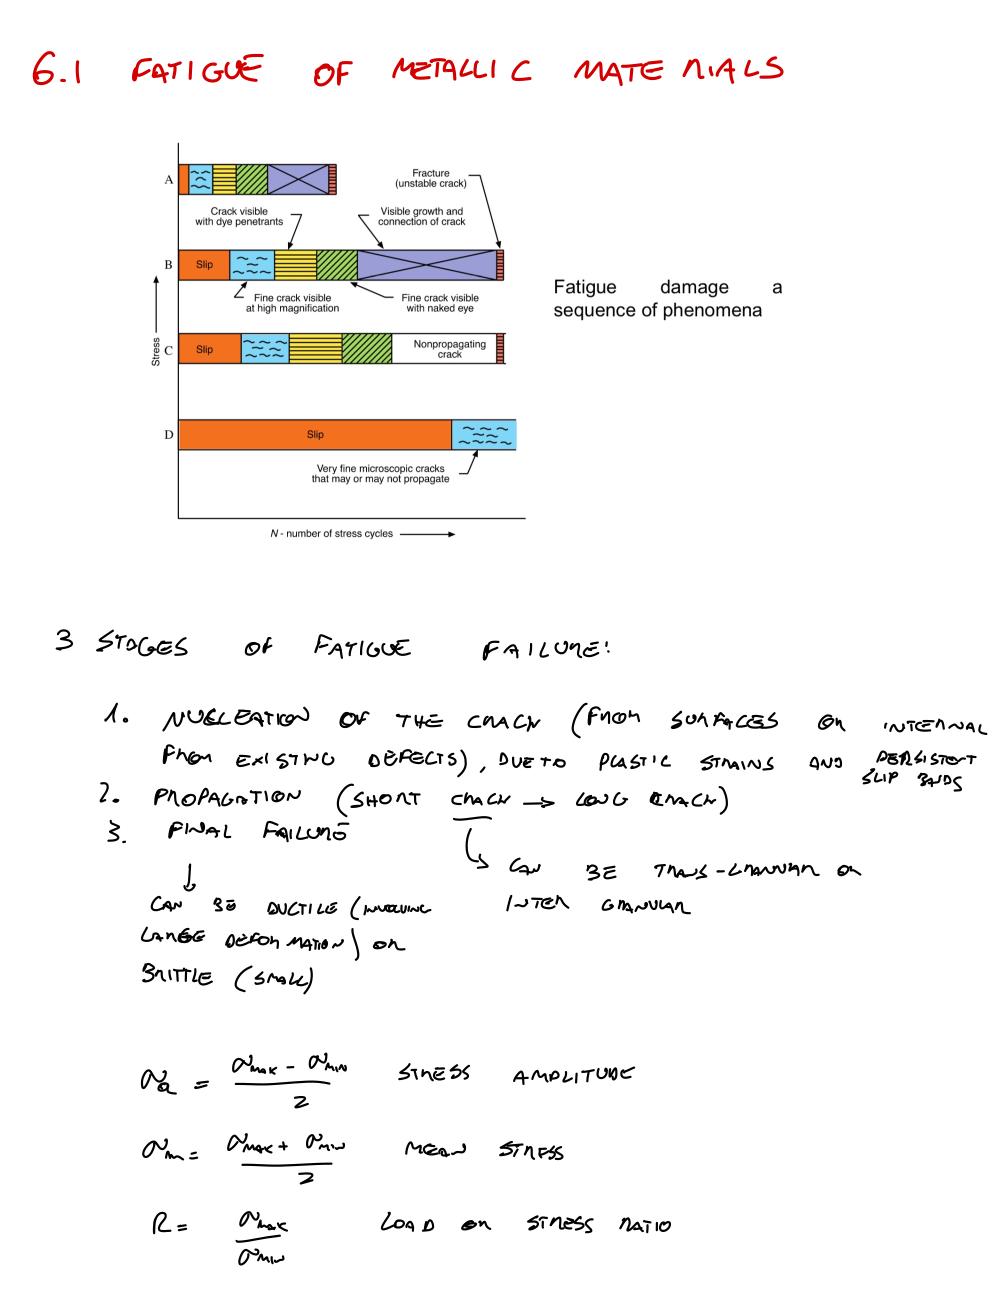 6.1 FATIGUE OF METALLIC MATERIALS
A
Fracture
(unstable crack)
Crack visible
with dye penetrants
Visible growth and
connection of crack
B
Slip
Fine crack visible
at high magnification
Fine crack visible
with naked eye
Fatigue damage a
sequence of phenomena
Stress
C
Slip
Nonpropagating
crack
D
Slip
Very fine microscopic cracks
that may or may not propagate
N - number of stress cycles
3 STAGES OF FATIGUE FAILURE:
1. NUCLEATION OF THE CRACK (FROM SURFACES OR INTERNAL
FROM EXISTING DEFECTS), DUE TO PLASTIC STRAINS AND PERSISTENT
SLIP BANDS
2. PROPAGATION (SHORT CRACK → LONG CRACK)
3. FINAL FAILURE
CAN BE TRANS-GRANULAR OR
INTER GRANULAR
CAN BE DUCTILE (INVOLVING
LARGE DEFORMATION) OR
BRITTLE (SMALL)
σa = (σMAX - σMIN) / 2 STRESS AMPLITUDE
σm = (σMAX + σMIN) / 2 MEAN STRESS
R = σMAX / σMIN LOAD OR STRESS RATIO